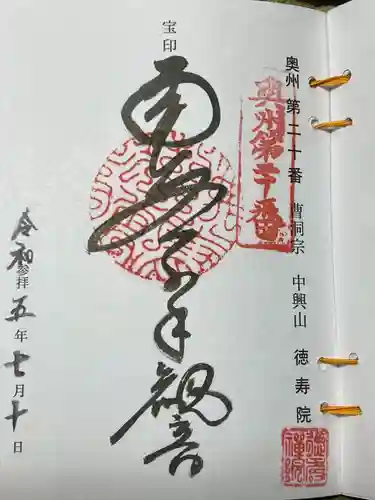 奥州 第二十番 曹洞宗 中興山 徳寿院
奥州第二十番
宝印
南無千手観音
令和参拝五年七月十日